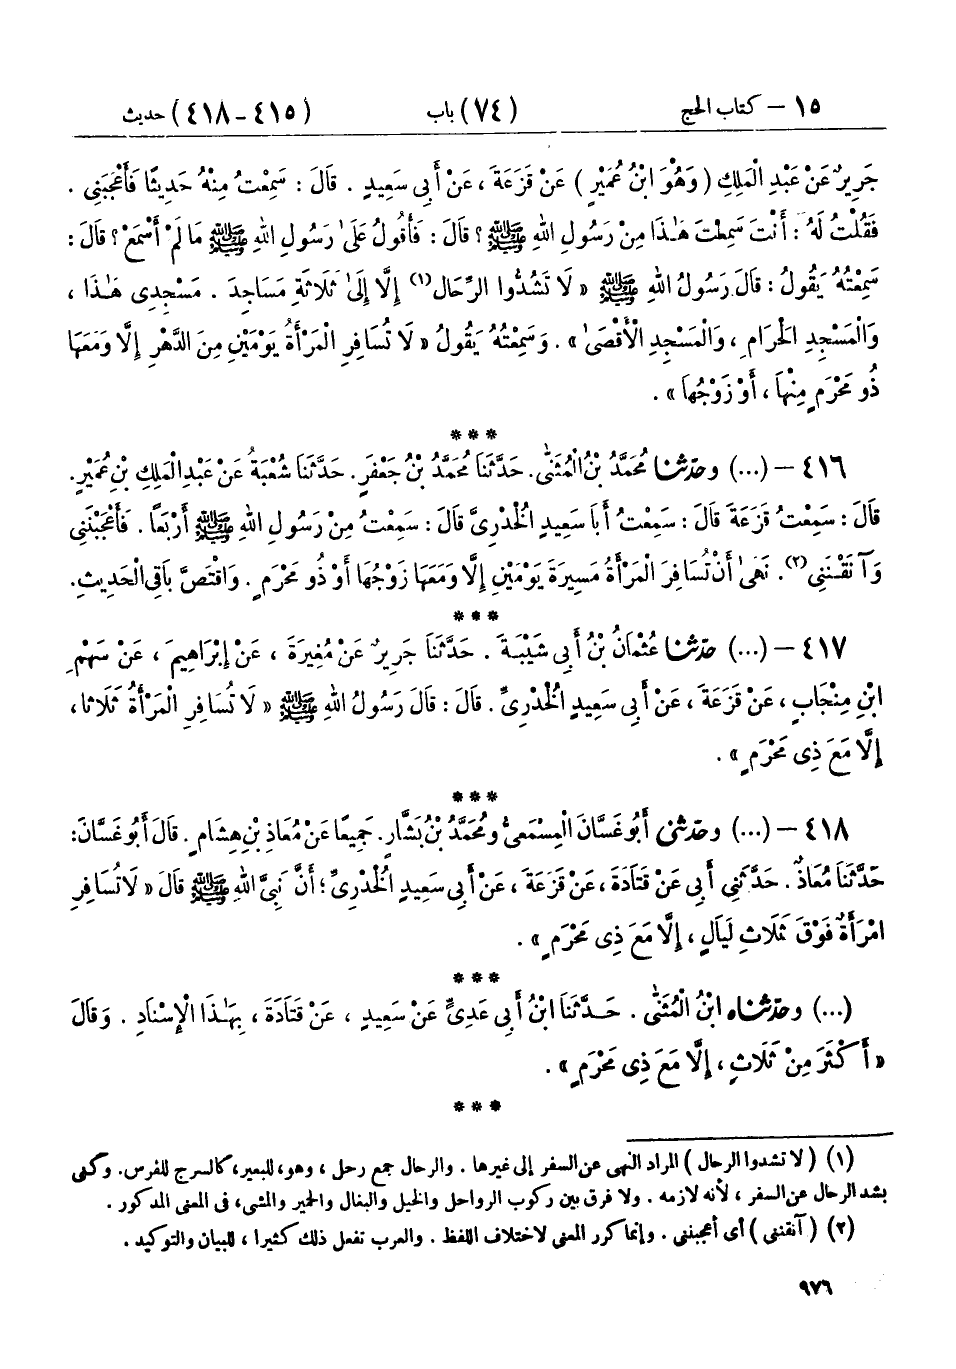 ١٥ – كتاب الحج (٧٤) باب (٤١٥–٤١٨) حديث
جَرِيرٌ عَنْ عَبْدِ الْمَلِكِ (وَهُوَ ابْنُ عُمَيْرٍ) عَنْ قَزَعَةَ، عَنْ أَبِي سَعِيدٍ. قَالَ: سَمِعْتُ مِنْهُ حَدِيثًا فَأَعْجَبَنِي.
فَقُلْتُ لَهُ: أَنْتَ سَمِعْتَ هَٰذَا مِنْ رَسُولِ اللهِ ﷺ؟ قَالَ: فَأَقُولُ عَلَىٰ رَسُولِ اللهِ ﷺ مَا لَمْ أَسْمَعْ؟ قَالَ:
سَمِعْتُهُ يَقُولُ: قَالَ رَسُولُ اللهِ ﷺ «لَا تَشُدُّوا الرِّحَالَ(١) إِلَّا إِلَىٰ ثَلَاثَةِ مَسَاجِدَ. مَسْجِدِى هَٰذَا،
وَالْمَسْجِدِ الْحَرَامِ، وَالْمَسْجِدِ الْأَقْصَىٰ». وَسَمِعْتُهُ يَقُولُ «لَا تُسَافِرِ الْمَرْأَةُ يَوْمَيْنِ مِنَ الدَّهْرِ إِلَّا وَمَعَهَا
ذُو مَحْرَمٍ مِنْهَا، أَوْ زَوْجُهَا».
***
٤١٦ – (...) وحدّثنا مُحَمَّدُ بْنُ الْمُثَنَّى. حَدَّثَنَا مُحَمَّدُ بْنُ جَعْفَرٍ. حَدَّثَنَا شُعْبَةُ عَنْ عَبْدِ الْمَلِكِ بْنِ عُمَيْرٍ.
قَالَ: سَمِعْتُ قَزَعَةَ قَالَ: سَمِعْتُ أَبَا سَعِيدٍ الْخُدْرِىَّ قَالَ: سَمِعْتُ مِنْ رَسُولِ اللهِ ﷺ أَرْبَعًا. فَأَعْجَبْنَنِي
وَآنَقْنَنِي(٢). نَهَىٰ أَنْ تُسَافِرَ الْمَرْأَةُ مَسِيرَةَ يَوْمَيْنِ إِلَّا وَمَعَهَا زَوْجُهَا أَوْ ذُو مَحْرَمٍ. وَاقْتَصَّ بَاقِيَ الْحَدِيثِ.
***
٤١٧ – (...) حدّثنا عُثْمَانُ بْنُ أَبِي شَيْبَةَ. حَدَّثَنَا جَرِيرٌ عَنْ مُغِيرَةَ، عَنْ إِبْرَاهِيمَ، عَنْ سَهْمِ
ابْنِ مِنْجَابٍ، عَنْ قَزَعَةَ، عَنْ أَبِي سَعِيدٍ الْخُدْرِىِّ. قَالَ: قَالَ رَسُولُ اللهِ ﷺ «لَا تُسَافِرِ الْمَرْأَةُ ثَلَاثًا،
إِلَّا مَعَ ذِى مَحْرَمٍ».
***
٤١٨ – (...) وحدّثنى أَبُو غَسَّانَ الْمِسْمَعِىُّ وَمُحَمَّدُ بْنُ بَشَّارٍ. جَمِيعًا عَنْ مُعَاذِ بْنِ هِشَامٍ. قَالَ أَبُو غَسَّانَ:
حَدَّثَنَا مُعَاذٌ. حَدَّثَنِي أَبِي عَنْ قَتَادَةَ، عَنْ قَزَعَةَ، عَنْ أَبِي سَعِيدٍ الْخُدْرِىِّ؛ أَنَّ نَبِيَّ اللهِ ﷺ قَالَ «لَا تُسَافِرِ
امْرَأَةٌ فَوْقَ ثَلَاثِ لَيَالٍ، إِلَّا مَعَ ذِى مَحْرَمٍ».
***
(...) وحدّثناه ابْنُ الْمُثَنَّى. حَدَّثَنَا ابْنُ أَبِي عَدِىٍّ عَنْ سَعِيدٍ، عَنْ قَتَادَةَ، بِهَٰذَا الْإِسْنَادِ. وَقَالَ
«أَكْثَرَ مِنْ ثَلَاثٍ، إِلَّا مَعَ ذِى مَحْرَمٍ».
***
(١) (لا تشدوا الرحال) المراد النهى عن السفر إلى غيرها. والرحال جمع رحل، وهو، للبعير، كالسرج للفرس. وكنى
بشد الرحال عن السفر، لأنه لازمه. ولا فرق بين ركوب الرواحل والخيل والبغال والحمير والمشى، فى المعنى المذكور.
(٢) (آنقننى) أى أعجبننى. وإنما كرر المعنى لاختلاف اللفظ. والعرب تفعل ذلك كثيرا، للبيان والتوكيد.
٩٧٦